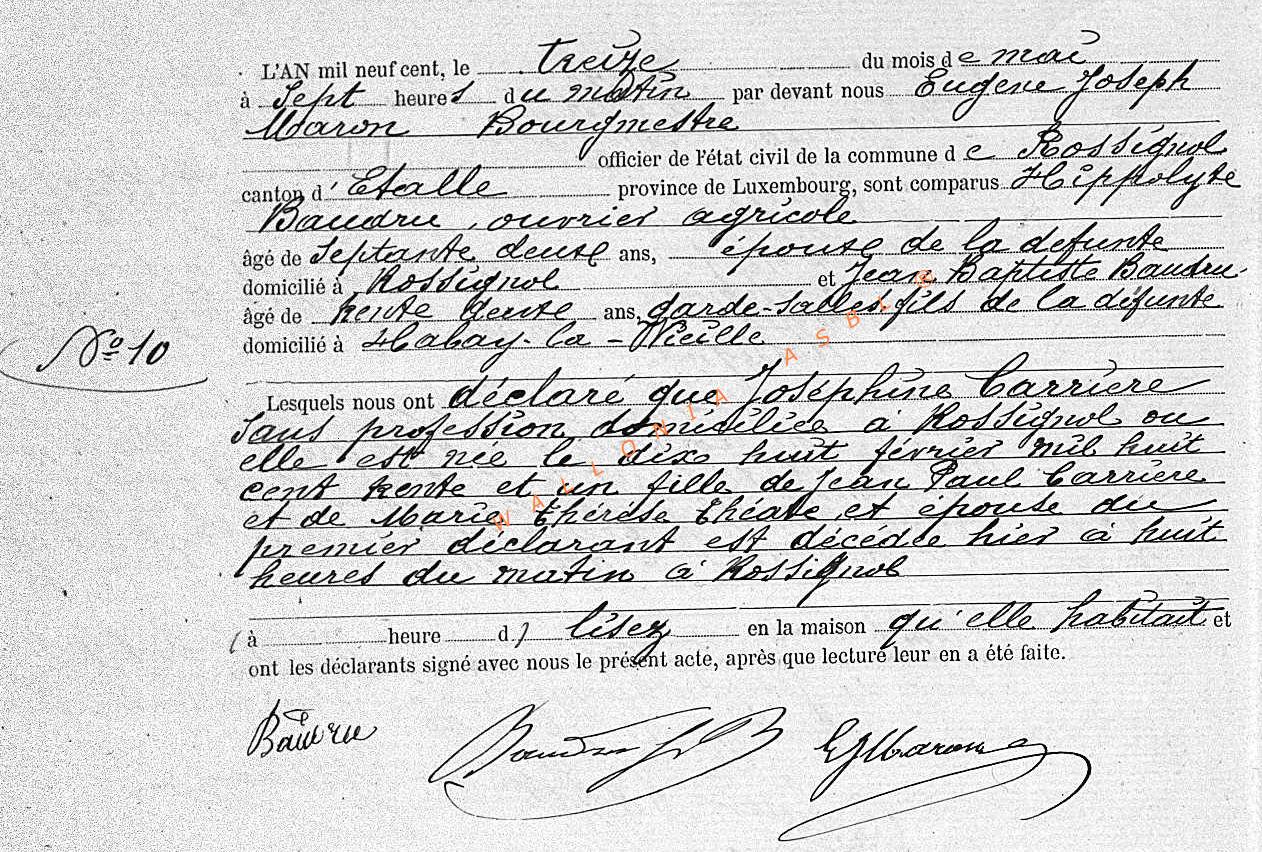 L'AN mil neuf cent, le treize du mois de mai
à Sept heures du matin par devant nous Eugène Joseph
Maron Bourgmestre
officier de l'état civil de la commune de Rossignol
canton d'Etalle province de Luxembourg, sont comparus Hippolyte
Baudru, ouvrier agricole
âgé de Septante deux ans, époux de la défunte
domicilié à Rossignol et Jean Baptiste Baudru
âgé de trente deux ans, garde-salles fils de la défunte
domicilié à Habay-la-Vieille
N° 10
Lesquels nous ont déclaré que Joséphine Carrière
Sans profession domiciliée à Rossignol ou
elle est née le dix huit février mil huit
cent trente et un fille de Jean Paul Carrière
et de Marie Thérèse Théate et épouse du
premier déclarant est décédée hier à huit
heures du matin à Rossignol
(à heure d.) lisez en la maison qu'elle habitait et
ont les déclarants signé avec nous le présent acte, après que lecture leur en a été faite.
Baudru Baudru J B EJMaron
WALLONIA ASBL